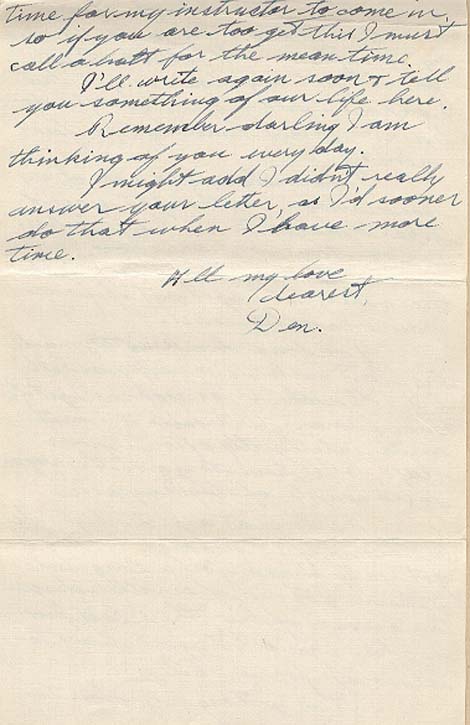 time for my instructor to come in,
so if you are too get this I must
call a halt for the mean time.
I'll write again soon & tell
you something of our life here.
Remember darling I am
thinking of you every day.
I might add I didn't really
answer your letter, as I'd sooner
do that when I have more
time.
All my love
dearest,
Den.